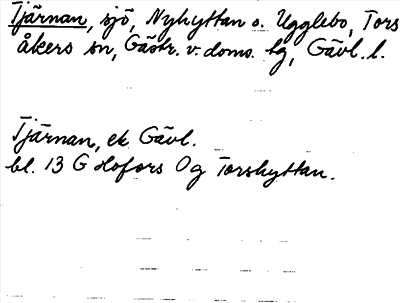 Tjärnan, sjö, Nyhyttan o. Ugglebo, Tors
åkers sn, Gästr. v. doms. hg, Gävl. l.
Tjärnan, ek Gävl.
bl. 13 G Hofors Og Torshyttan.